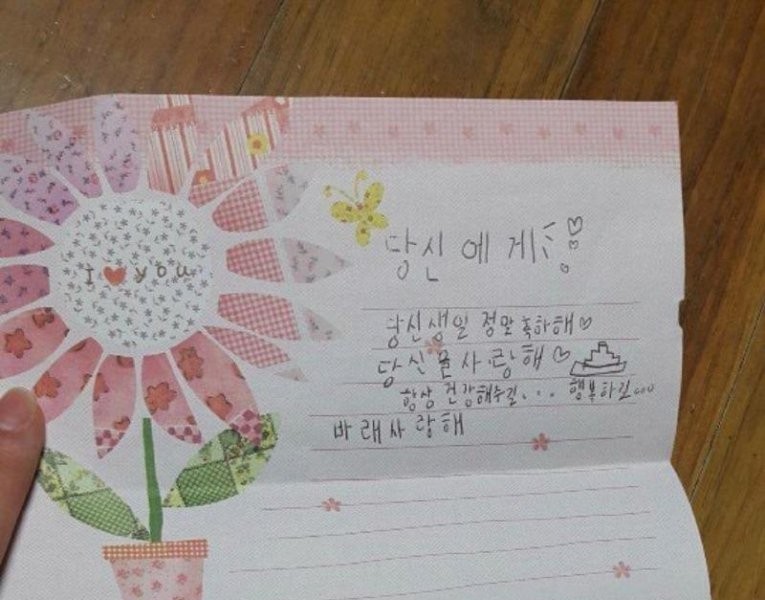 I ♥ you
당신에게
당신생일 정말 축하해♡
당신을사랑해♡
항상 건강해주길... 행복하길...
바래사랑해